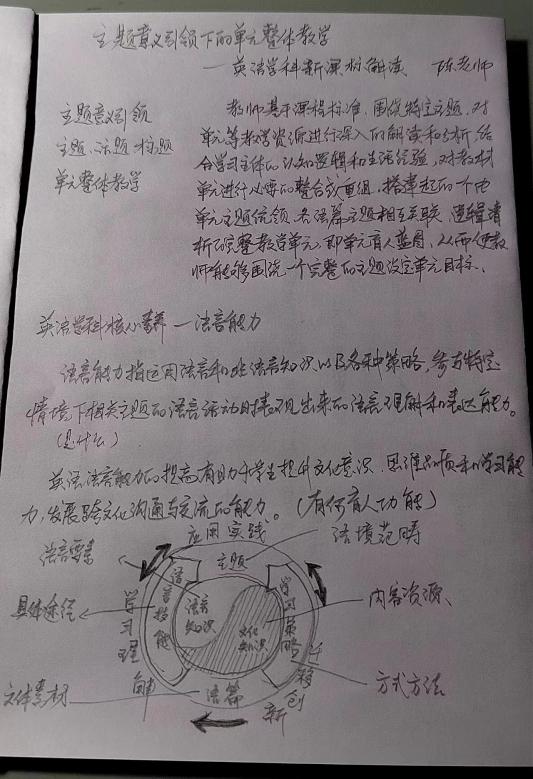 主题意义引领下的单元整体教学
—英语学科新课标解读 陈老师
主题意义引领
主题、话题、标题
单元整体教学
教师基于课程标准，围绕特定主题，对
单元等教学资源进行深入的解读和分析，结
合学习主体的认知逻辑和生活经验，对教材
单元进行必要的整合或重组，搭建起的一个由
单元主题统领，各语篇主题相互关联、逻辑清
晰的完整教学单元，即单元育人蓝图，从而使教
师能够围绕一个完整的主题设定单元目标。
英语学科核心素养—语言能力
语言能力指运用语言和非语言知识以及各种策略，参与特定
情境下相关主题的语言活动时表现出来的语言理解和表达能力。
（是什么）
英语语言能力的提高有助于学生提升文化意识、思维品质和学习能
力，发展跨文化沟通与交流的能力。（有何育人功能）
应用实践
语言要素
主题
语境范畴
具体途径
学习理解
语言技能
语言知识
文化知识
学习策略
内容资源
迁移创新
方式方法
文体素材
语篇